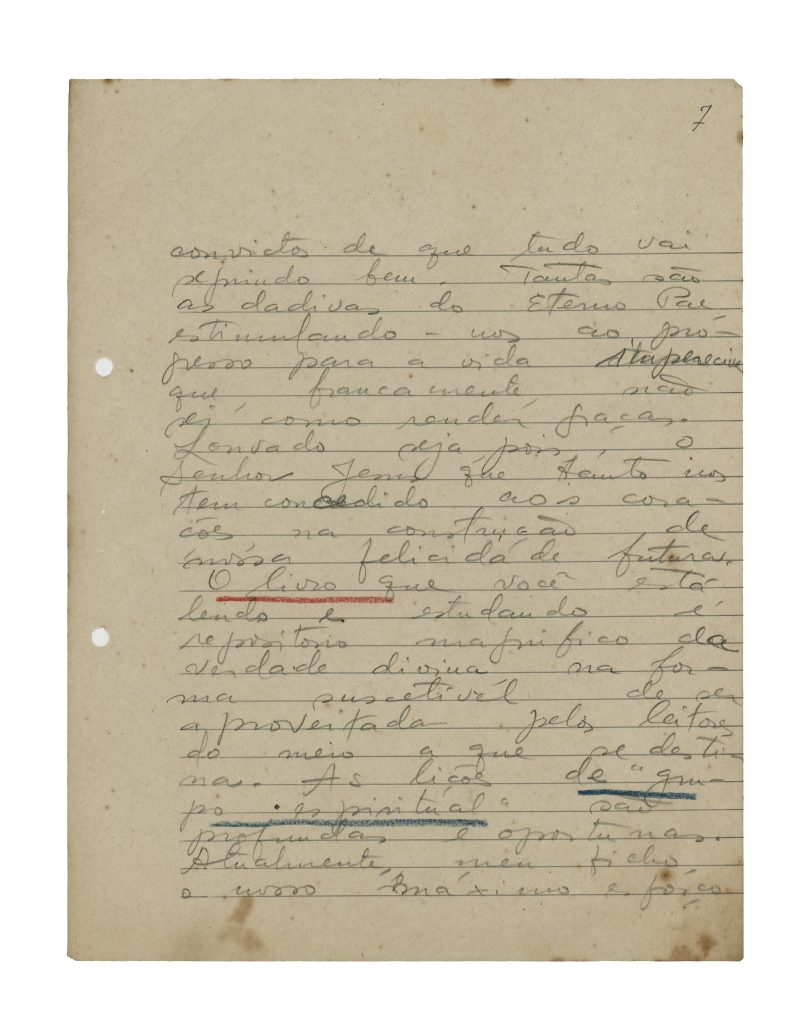 7
convictos de que tudo vai
seguindo bem. Tantas são
as dadivas do Eterno Pae
estimulando-nos ao pro-
gresso para a vida
que francamente, não
sei como render graças.
Louvado seja pois, o
Senhor Jesus que tanto nos
tem concedido aos cora-
ções na construção de
nossa felicidade futura.
O livro que você está
lendo e estudando é
repositorio magnifico da
verdade divina na for-
ma suscetivel de ser
aproveitada pelos leitores
do meio a que se desti-
na. As lições de "gru-
po espiritual" são
profundas e oportunas.
Atualmente, meu filho
o nosso máximo esforço